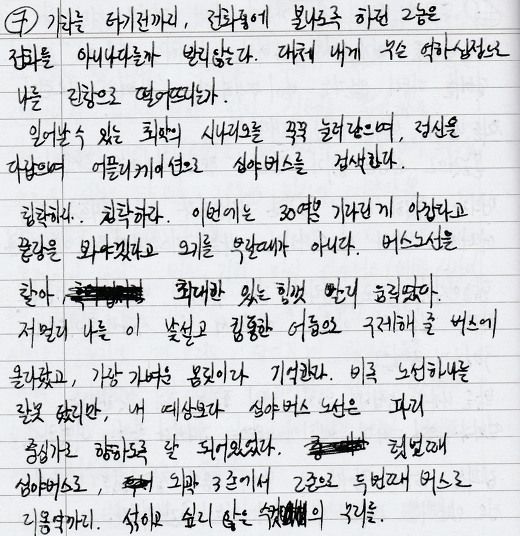 ⑦ 기차를 타기전까지, 전화통에 불나도록 하던 그놈은
전화를 아니나다를까 받지않는다. 대체 내게 무슨 억하심정으로
나를 진창으로 떨어뜨리는가.
일어날 수 있는 최악의 시나리오를 꾹꾹 눌러담으며, 정신을
다잡으며 어플리케이션으로 심야버스를 검색한다.
침착하라. 침착하라. 이번에는 30여분 기다린게 아깝다고
끝장을 봐야겠다고 오기를 부릴때가 아니다. 버스노선을
찾아 최대한 있는힘껏 빨리 움직였다.
저멀리 나를 이 낯설고 침통한 어둠으로 구제해 줄 버스에
올라탔고, 가장 가벼운 몸짓이라 기억한다. 비록 노선하나를
잘못 탔지만, 내 예상보다 심야버스 노선은 파리
중심가로 향하도록 잘 되어있었다. 첫번째
심야버스로, 외곽 3존에서 2존으로 두번째 버스로
리옹역까지. 섞이고 싶지 않은 의 무리들.